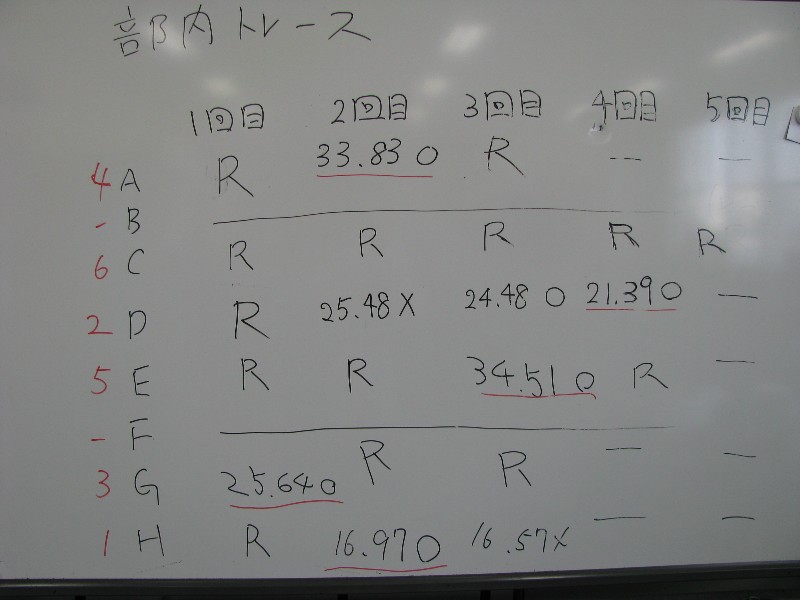 部内トレース
1回目 2回目 3回目 4回目 5回目
4 A R 33.83 ○ R — —
- B
6 C R R R R R
2 D R 25.48 × 24.48 ○ 21.39 ○ —
5 E R R 34.51 ○ R —
- F
3 G 25.64 ○ R R — —
1 H R 16.97 ○ 16.57 × — —